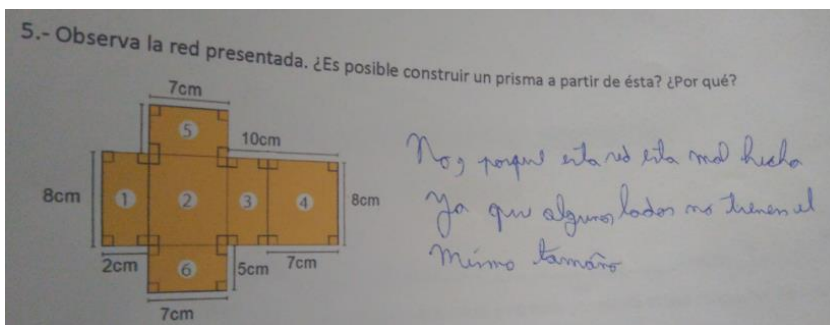 5.- Observa la red presentada. ¿Es posible construir un prisma a partir de ésta? ¿Por qué?
7cm
5
10cm
8cm
1
2
3
4
8cm
2cm
6
5cm
7cm
7cm
No, porque esta red esta mal hecha
Ya que algunos lados no tienen el
mismo tamaño